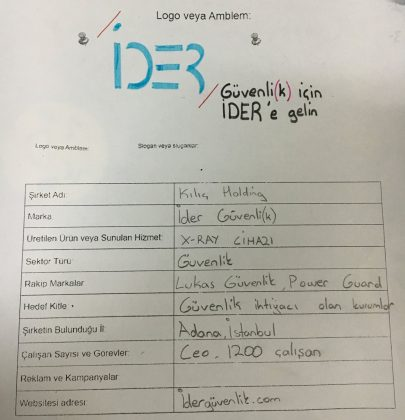 Logo veya Amblem:
İDER
Güvenli(k) için
İDER'e gelin
Logo veya Amblem: Slogan veya sloganlar:
Şirket Adı: Kılıç Holding
Marka İder Güvenli(k)
Üretilen Ürün veya Sunulan Hizmet: X-RAY CİHAZI
Sektör Türü: Güvenlik
Rakip Markalar Lukas Güvenlik, Power Guard
Hedef Kitle Güvenlik ihtiyacı olan kurumlar
Şirketin Bulunduğu İl: Adana, İstanbul
Çalışan Sayısı ve Görevler: Ceo, 1200 çalışan
Reklam ve Kampanyalar
Websitesi adresi: İdergüvenlik.com